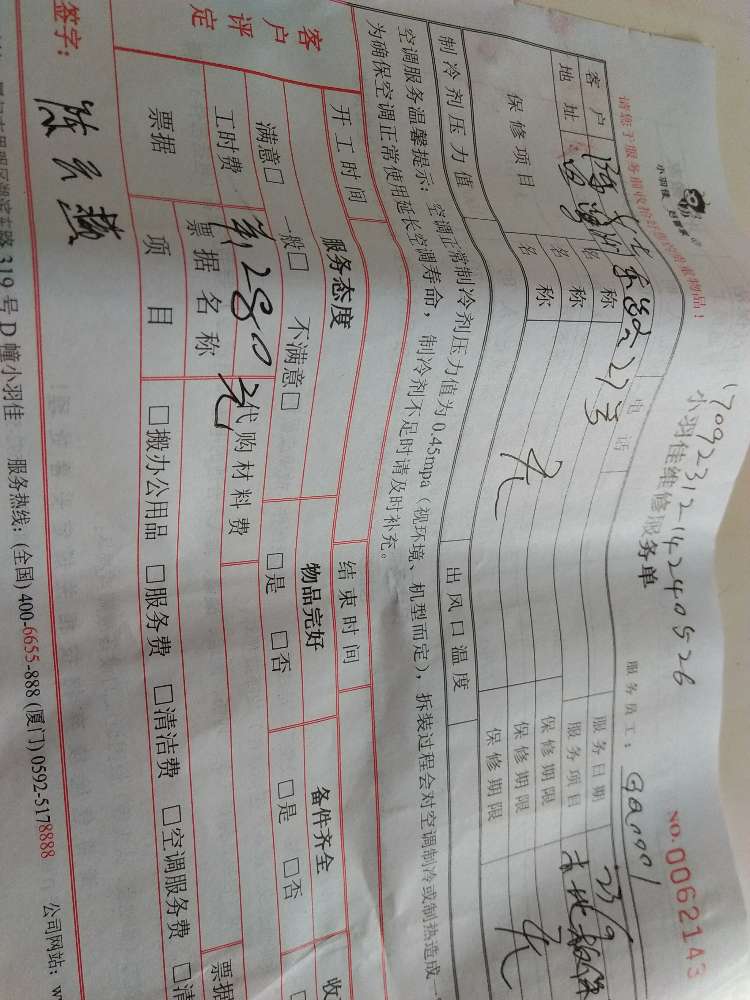 请您于服务前收拾好您的贵重物品!
小羽佳
1709231214240526
小羽佳维修服务单
NO.0062143
服务员工:
客户
地址
27号
电话
服务日期
23/9
服务项目
保修项目
名称
名称
名称
无
保修期限
保修期限
保修期限
无
制冷剂压力值
出风口温度
空调服务温馨提示:空调正常制冷剂压力值为0.45mpa(视环境、机型而定),拆装过程会对空调制冷或制热造成一
为确保空调正常使用延长空调寿命,制冷剂不足时请及时补充。
开工时间
结束时间
客户评定
服务态度
物品完好
备件齐全
收
满意□ 一般□ 不满意□
□是 □否
□是 □否
工时费
共280元
代购材料费
票据
票据名称
票据
项目
□搬办公用品 □服务费 □清洁费 □空调服务费 □清
签字:
319号D幢小羽佳 服务热线:(全国)400-6655-888(厦门)0592-5178888 公司网站:w